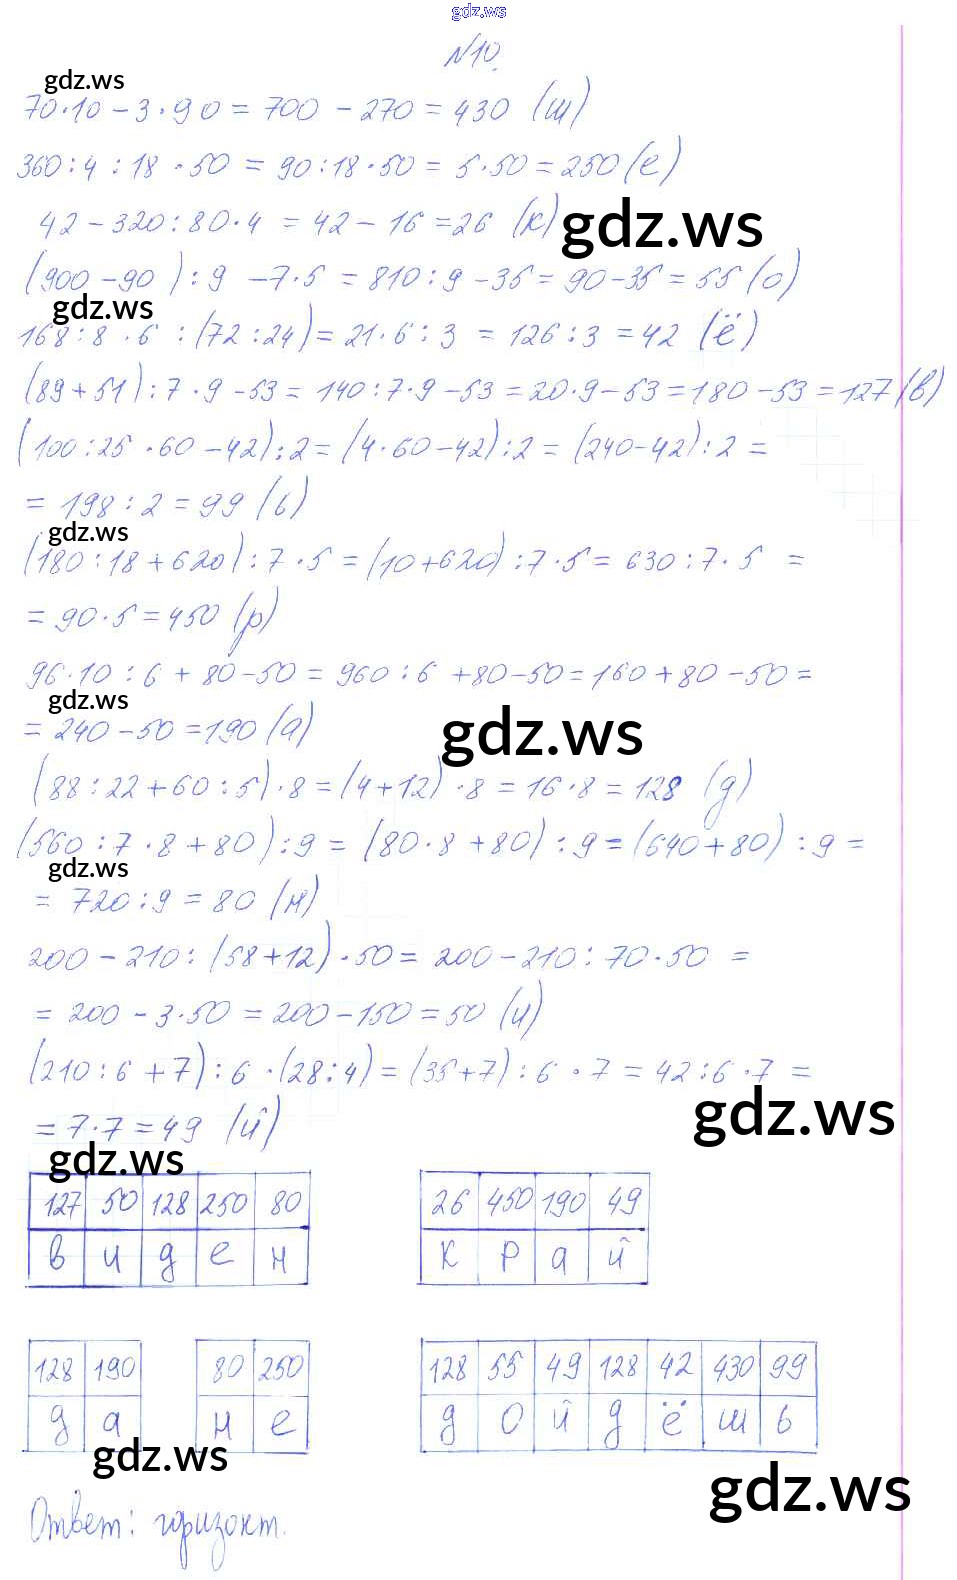 gdz.ws
№10.
gdz.ws
70·10 - 3·90 = 700 - 270 = 430 (ш)
360:4:18·50 = 90:18·50 = 5·50 = 250 (е)
42 - 320:80·4 = 42 - 16 = 26 (к)
gdz.ws
(900 - 90):9 - 7·5 = 810:9 - 35 = 90 - 35 = 55 (о)
gdz.ws
168:8·6:(72:24) = 21·6:3 = 126:3 = 42 (ё)
(89+51):7·9 - 53 = 140:7·9 - 53 = 20·9 - 53 = 180 - 53 = 127 (в)
(100:25·60 - 42):2 = (4·60 - 42):2 = (240 - 42):2 =
= 198:2 = 99 (ь)
gdz.ws
(180:18 + 620):7·5 = (10+620):7·5 = 630:7·5 =
= 90·5 = 450 (р)
96·10:6 + 80 - 50 = 960:6 + 80 - 50 = 160 + 80 - 50 =
gdz.ws
= 240 - 50 = 190 (а)
gdz.ws
(88:22 + 60:5)·8 = (4+12)·8 = 16·8 = 128 (д)
(560:7·8 + 80):9 = (80·8 + 80):9 = (640 + 80):9 =
gdz.ws
= 720:9 = 80 (н)
200 - 210:(58+12)·50 = 200 - 210:70·50 =
= 200 - 3·50 = 200 - 150 = 50 (и)
(210:6 + 7):6·(28:4) = (35+7):6·7 = 42:6·7 =
gdz.ws
= 7·7 = 49 (й)
gdz.ws
127 50 128 250 80 26 450 190 49
в и д е н к р а й
128 190 80 250 128 55 49 128 42 430 99
д а н е д о й д ё ш ь
gdz.ws
gdz.ws
Ответ: горизонт.